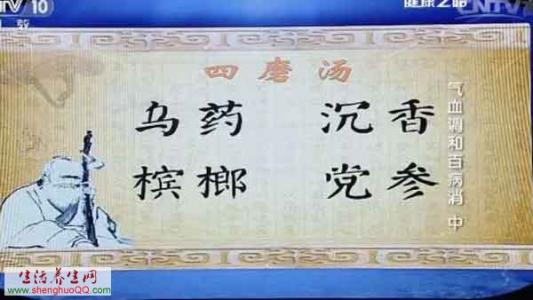 TV 10
健康之路
CNTV
四磨汤
乌药 沉香
槟榔 党参
气血调和百病消 中
生活养生网
www.shenghuoQQ.com